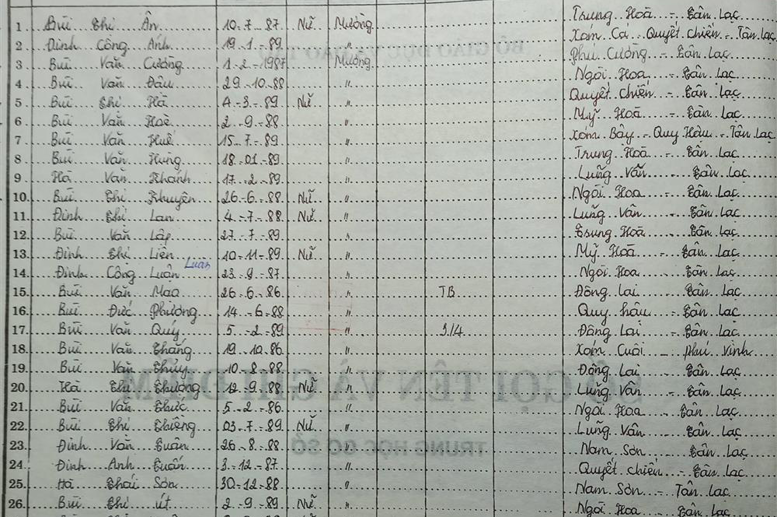 1 Bùi Thị Ân 10.7.87 Nữ Mường Trung Hoà - Tân Lạc
2 Đinh Công Anh 19.1.89 " Xóm Cá - Quyết Chiến - Tân Lạc
3 Bùi Văn Cường 1-2-1987 Mường Phú Cường - Tân Lạc
4 Bùi Văn Đâu 29-10-88 " Ngòi Hoa - Tân Lạc
5 Bùi Thị Hà 4-3-89 Nữ " Quyết Chiến - Tân Lạc
6 Bùi Văn Hoè 2-9-88 " Mỹ Hoà - Tân Lạc
7 Bùi Văn Huê 15-7-89 " Xóm Bây - Quy Hậu - Tân Lạc
8 Bùi Văn Hưng 18-01-89 " Trung Hoà - Tân Lạc
9 Hà Văn Khánh 17-2-89 " Lũng Vân - Tân Lạc
10. Bùi Thị Khuyên 26-6-88 Nữ " Ngòi Hoa - Tân Lạc
11 Đinh Thị Lan 4-7-88 Nữ " Lũng Vân - Tân Lạc
12 Bùi Văn Lập 27-7-89 " Trung Hoà - Tân Lạc
13. Đinh Thị Liên 10-11-89 Nữ " Mỹ Hoà - Tân Lạc
14 Đinh Công Luận Luân 23-9-87 " Ngòi Hoa - Tân Lạc
15 Bùi Văn Mao 26-6-86 " TB Đông Lai - Tân Lạc
16. Bùi Đức Phương 14-6-88 " Quy Hậu - Tân Lạc
17 Bùi Văn Quý 5-2-89 " 3/4 Đông Lai - Tân Lạc
18. Bùi Văn Thắng 19-10-86 " Xóm Cuôi - Phú Vinh
19. Bùi Văn Thủy 10-8-88 " Đông Lai - Tân Lạc
20. Hà Thị Thương 12-9-88 Nữ " Lũng Vân - Tân Lạc
21. Bùi Văn Thức 5-2-86 " Ngòi Hoa - Tân Lạc
22. Bùi Thị 03-7-89 Nữ " Lũng Vân - Tân Lạc
23. Đinh Văn Tuân 26-8-88 " Nam Sơn - Tân Lạc
24. Đinh Anh Tuấn 3-12-87 " Quyết Chiến - Tân Lạc
25. Hà Thái Sơn 30-12-88 " Nam Sơn - Tân Lạc
26. Bùi Thị Út 2-9-89 Nữ " Ngòi Hoa - Tân Lạc